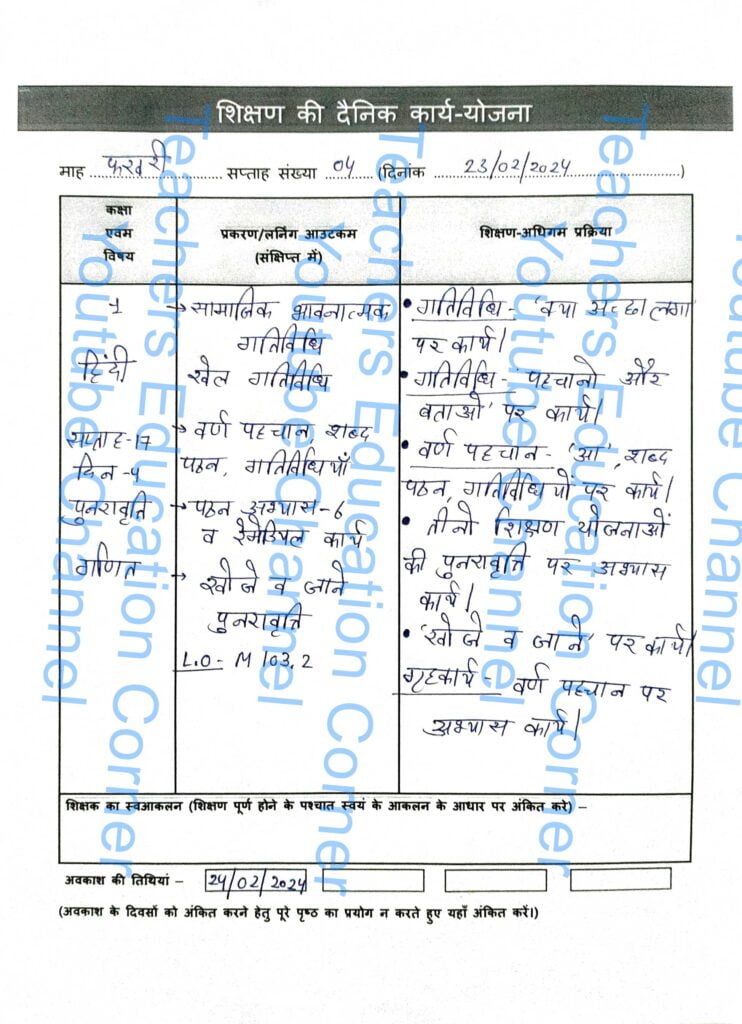 शिक्षण की दैनिक कार्य-योजना
माह फरवरी सप्ताह संख्या 04 (दिनांक 23/02/2024)
कक्षा
एवम
विषय
प्रकरण/लर्निंग आउटकम
(संक्षिप्त में)
शिक्षण-अधिगम प्रक्रिया
1
हिंदी
सप्ताह-17
दिन-4
पुनरावृति
गणित
→ सामाजिक भावनात्मक
गतिविधि
खेल गतिविधि
→ वर्ण पहचान, शब्द
पठन, गतिविधियाँ
→ पठन अभ्यास-6
व रेमेडियल कार्य
→ खोजे व जाने
पुनरावृत्ति
L.O- M 103.2
• गतिविधि- 'क्या अच्छा लगा'
पर कार्य।
• गतिविधि- 'पहचानो और
बताओ' पर कार्य।
• वर्ण पहचान- 'ओ', शब्द
पठन, गतिविधियों पर कार्य।
• तीनो शिक्षण योजनाओं
की पुनरावृत्ति पर अभ्यास
कार्य।
• 'खोजे व जाने' पर कार्य।
गृहकार्य- वर्ण पहचान पर
अभ्यास कार्य।
शिक्षक का स्वआकलन (शिक्षण पूर्ण होने के पश्चात स्वयं के आकलन के आधार पर अंकित करे) –
अवकाश की तिथियां – 24/02/2024
(अवकाश के दिवसों को अंकित करने हेतु पूरे पृष्ठ का प्रयोग न करते हुए यहाँ अंकित करें।)
Teachers Education Corner
Youtube Channel
Teachers Education Corner
Youtube Channel
Teachers Education Corner
Youtube Channel